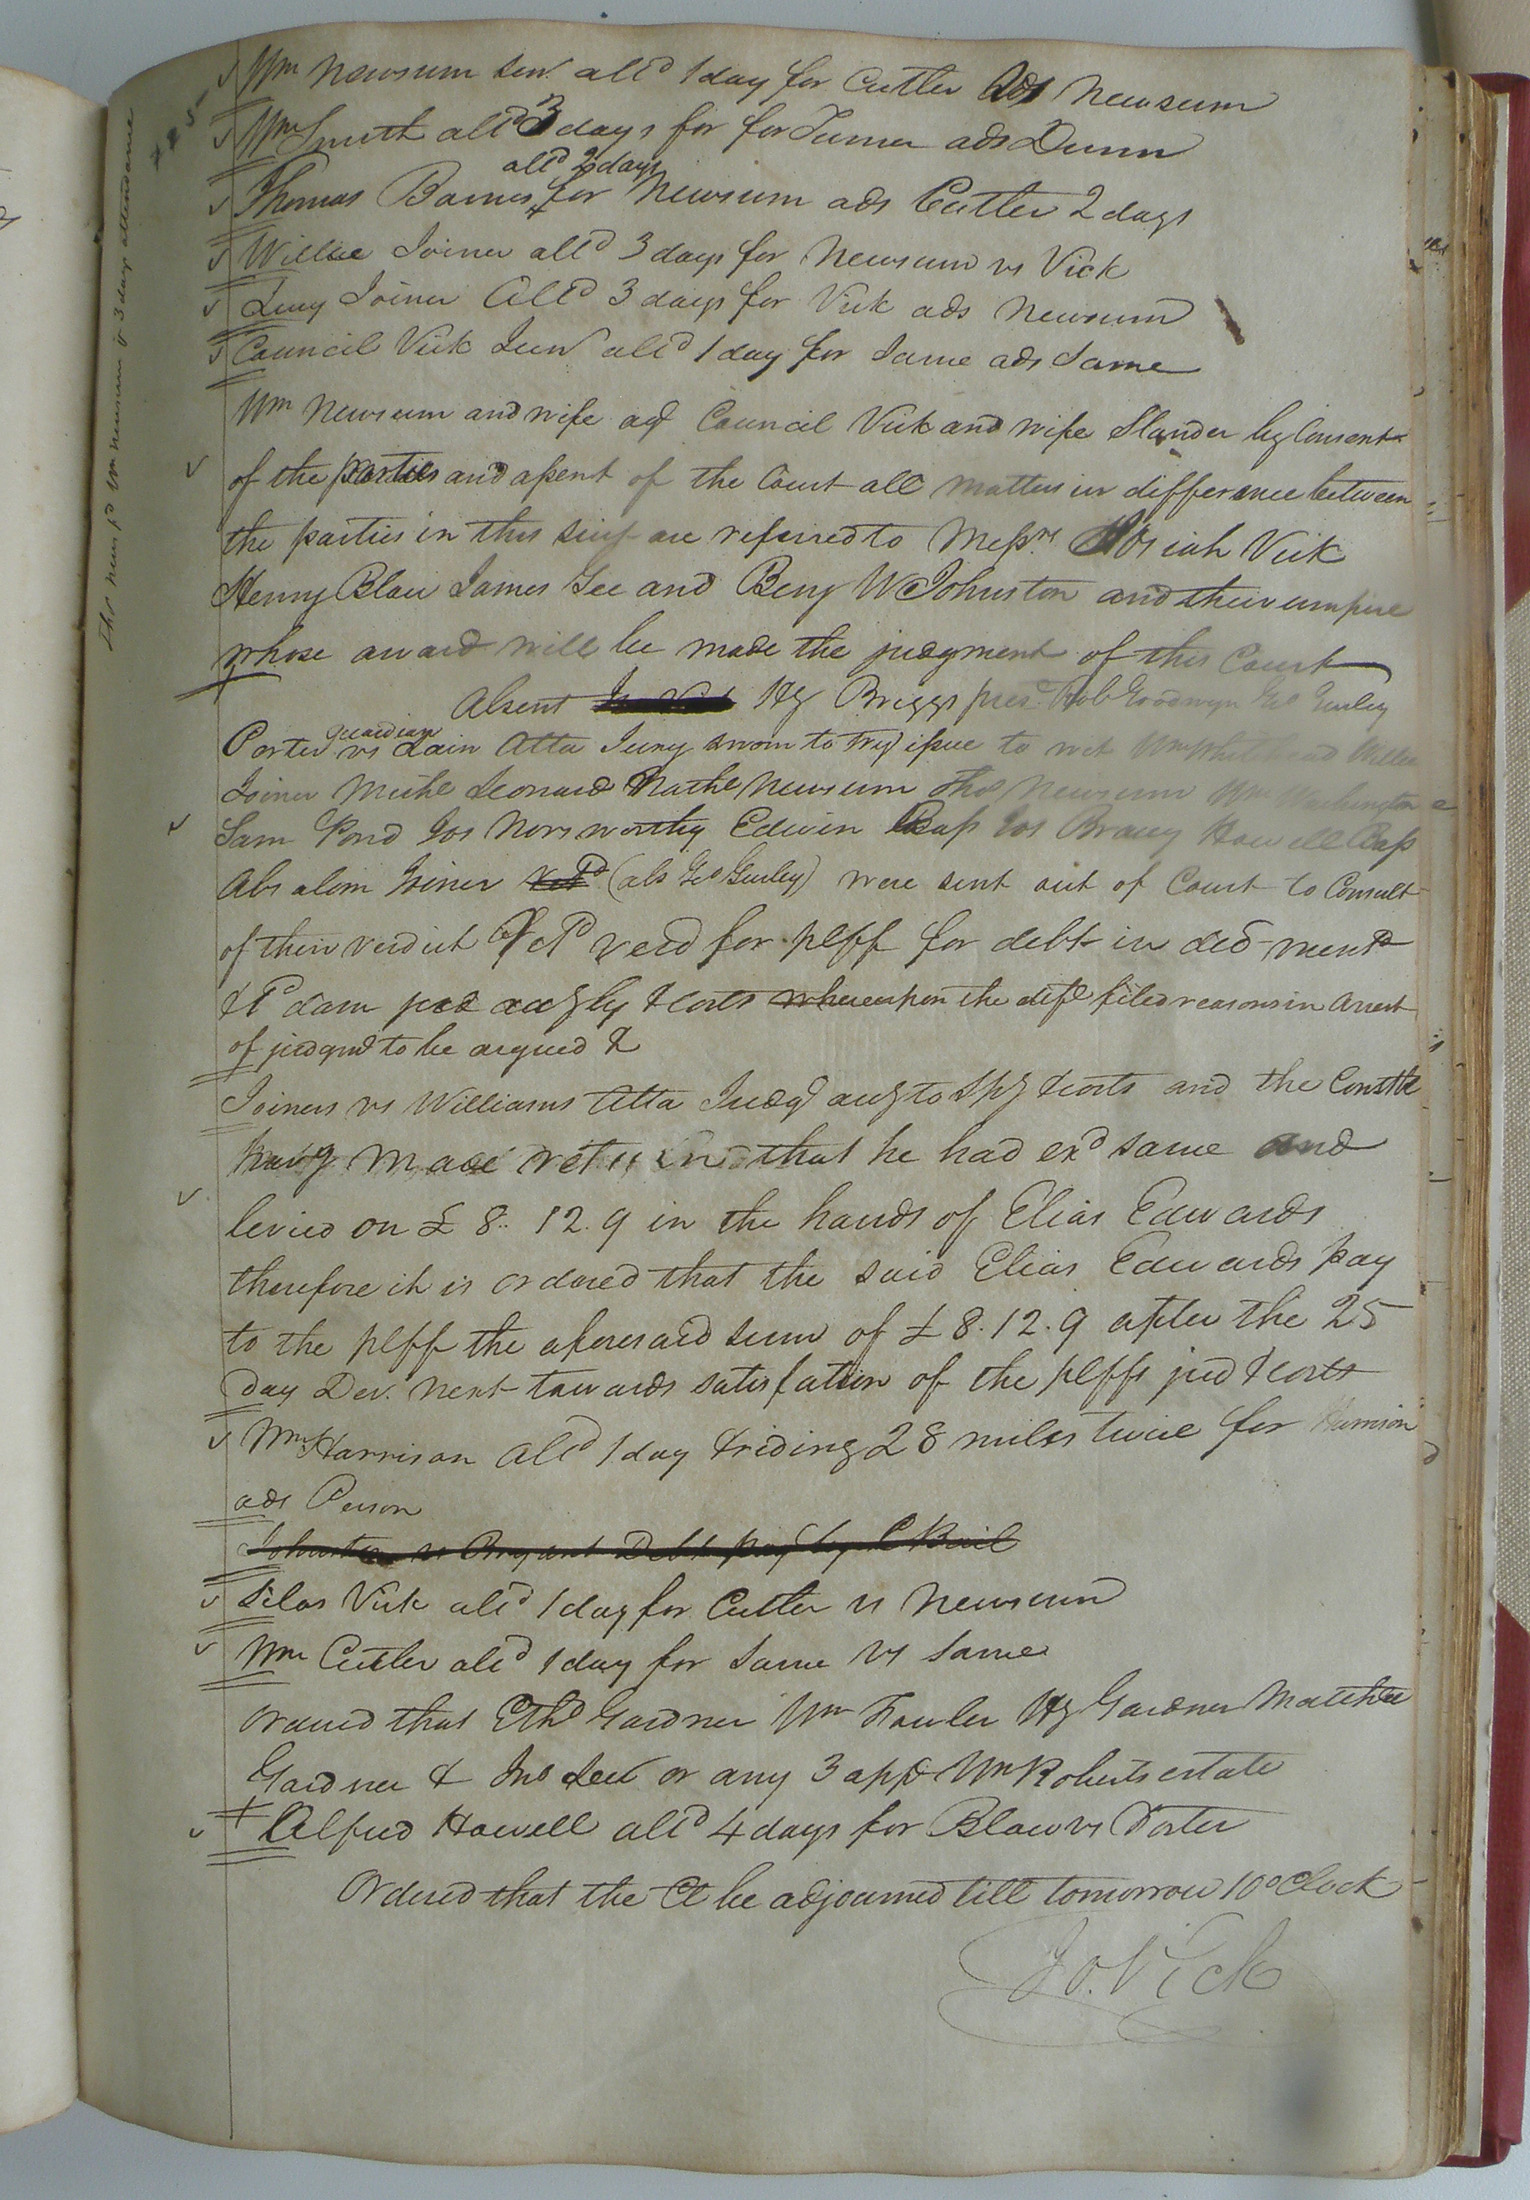 Wm Newsum Senr. alld 1 day for Cutler ads Newsum
Wm Smith alld 3 days for for Turner ads Dunn
alld 2 days
Thomas Barnes for Newsum ads Cutler 2 days
Willie Joiner alld 3 days for Newsum vs Vick
Joiner Alld 3 days for Vick ads Newsum
Council Vick Junr alld 1 day for Same ads Same
Wm Newsum and wife agt Council Vick and wife Slander by Consent
of the parties and assent of the Court all matters in difference between
the parties in this suit are referred to Messrs Josiah Vick
Henry Blow James Gee and Benj W Johnston and their umpire
whose award will be made the judgment of this Court
Absent Hy Briggs pres. Rob Goodwyn Geo Gurley
guardian
Porter vs Lain Atta Jury sworn to try issue to wit Wm Whitehead Willie
Joiner Michl Leonard Nathl Newsum Thos Newsum Wm Washington
Sam Pond Jos Norsworthy Edwin Bass Jos Braey Howell Bass
Absalom Joiner (abs Geo Gurley) were sent out of Court to Consult
of their verdict & retd verd for pltff for debt in decl mentd
& 1d dam jud accgly & costs whereupon the deft filed reasons in arrest
of judgmt to be argued &
Joiners vs Williams Atta Judgt accg to Spy & costs and the Constble
havg made return that he had exd same and
levied on £ 8.. 12. 9 in the hands of Elias Edwards
therefore it is ordered that the said Elias Edwards pay
to the pltff the aforesaid sum of £ 8. 12. 9 after the 25
day Der. next towards satisfation of the pltffs jud & costs
Wm Harrison alld 1 day & riding 28 miles twice for Harrison
ads Person
Johnston vs Bryant Debt by C Bail
Silas Vick alld 1 day for Cutler vs Newsum
Wm Cutler alld 1 day for Same vs Same
Ordered that Ethd Gardner Wm Fowler Hy Gardner Matthew
Gardner & Jno or any 3 app Wm Roberts estate
Alfred Howell alld 4 days for Blow vs Porter
Ordered that the Ct be adjourned till tomorrow 10 oClock
Jo. Vick